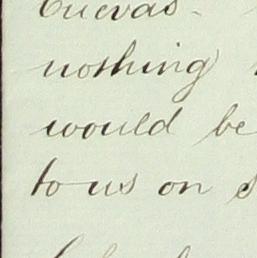 Cuevas.
nothing
would be
to us on